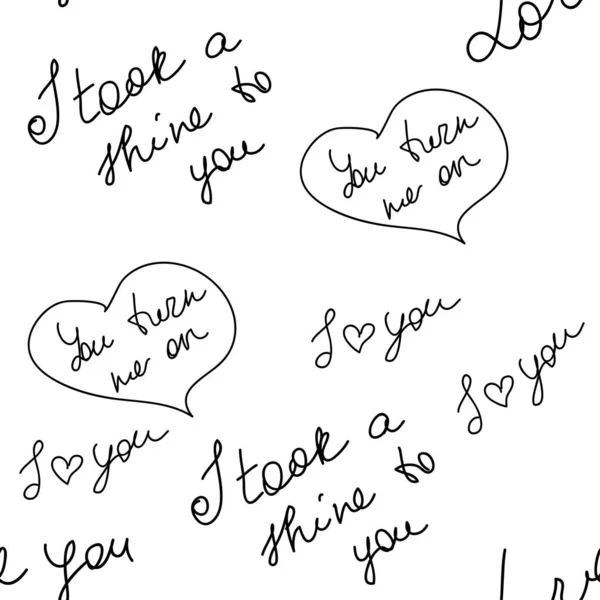 Lo
I took a
shine to
you
You turn
me on
You turn
me on
I ♡ you
I ♡ you
I ♡ you
I took a
shine to
you
e you